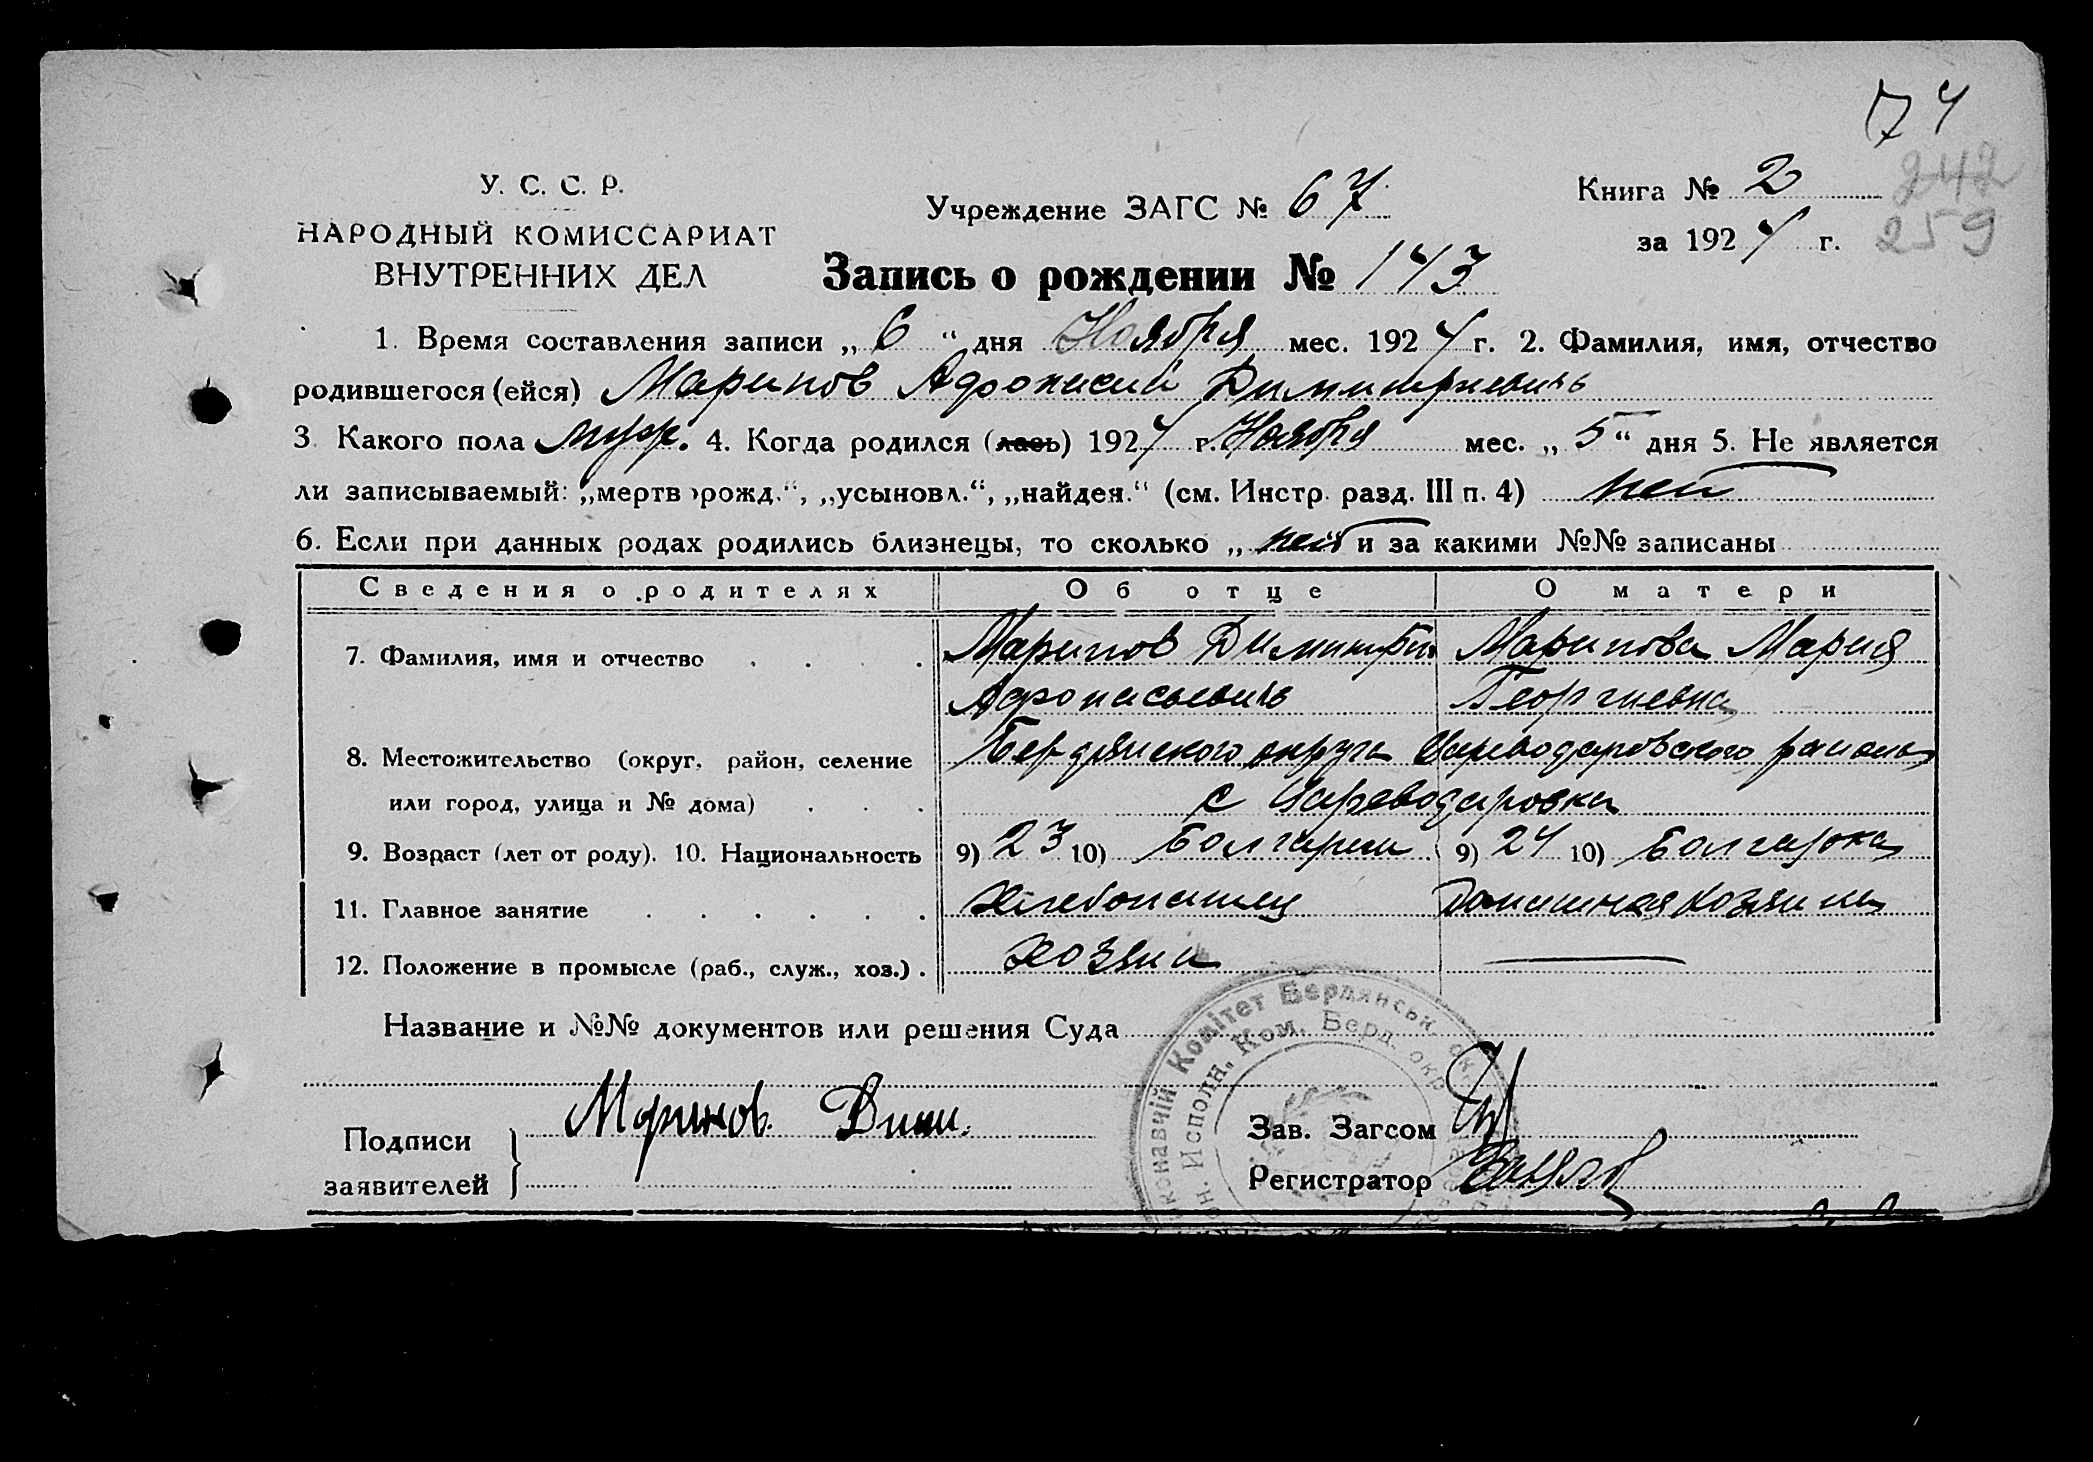 74
242
259
У. С. С. Р.
НАРОДНЫЙ КОМИССАРИАТ
ВНУТРЕННИХ ДЕЛ
Учреждение ЗАГС № 67
Книга № 2
за 1924 г.
Запись о рождении № 143
1. Время составления записи „ 6 “ дня Ноября мес. 1924 г. 2. Фамилия, имя, отчество
родившегося (ейся) Маринов Афонасий Димитриевичь
3. Какого пола муж. 4. Когда родился (лась) 1924 г. Ноября мес. „ 5 “ дня 5. Не является
ли записываемый: „мертворожд.“, „усыновл.“, „найден.“ (см. Инстр. разд. III п. 4) нет
6. Если при данных родах родились близнецы, то сколько „ нет и за какими №№ записаны
Сведения о родителях Об отце О матери
7. Фамилия, имя и отчество Маринов Димитрий Маринова Мария
Афонасьевичь Георгиевна
8. Местожительство (округ, район, селение Бердянского округа Цареводаровского района
или город, улица и № дома) с Цареводаровка
9. Возраст (лет от роду). 10. Национальность 9) 23 10) Болгарин 9) 24 10) Болгарка
11. Главное занятие Хлебопашец Домашная хозяика
12. Положение в промысле (раб., служ., хоз.) хозяин
Название и №№ документов или решения Суда
Подписи
заявителей
Маринов Дим.
Зав. Загсом
Регистратор
Комітет Бердянськ.
Исполн. Ком. Берд. окр